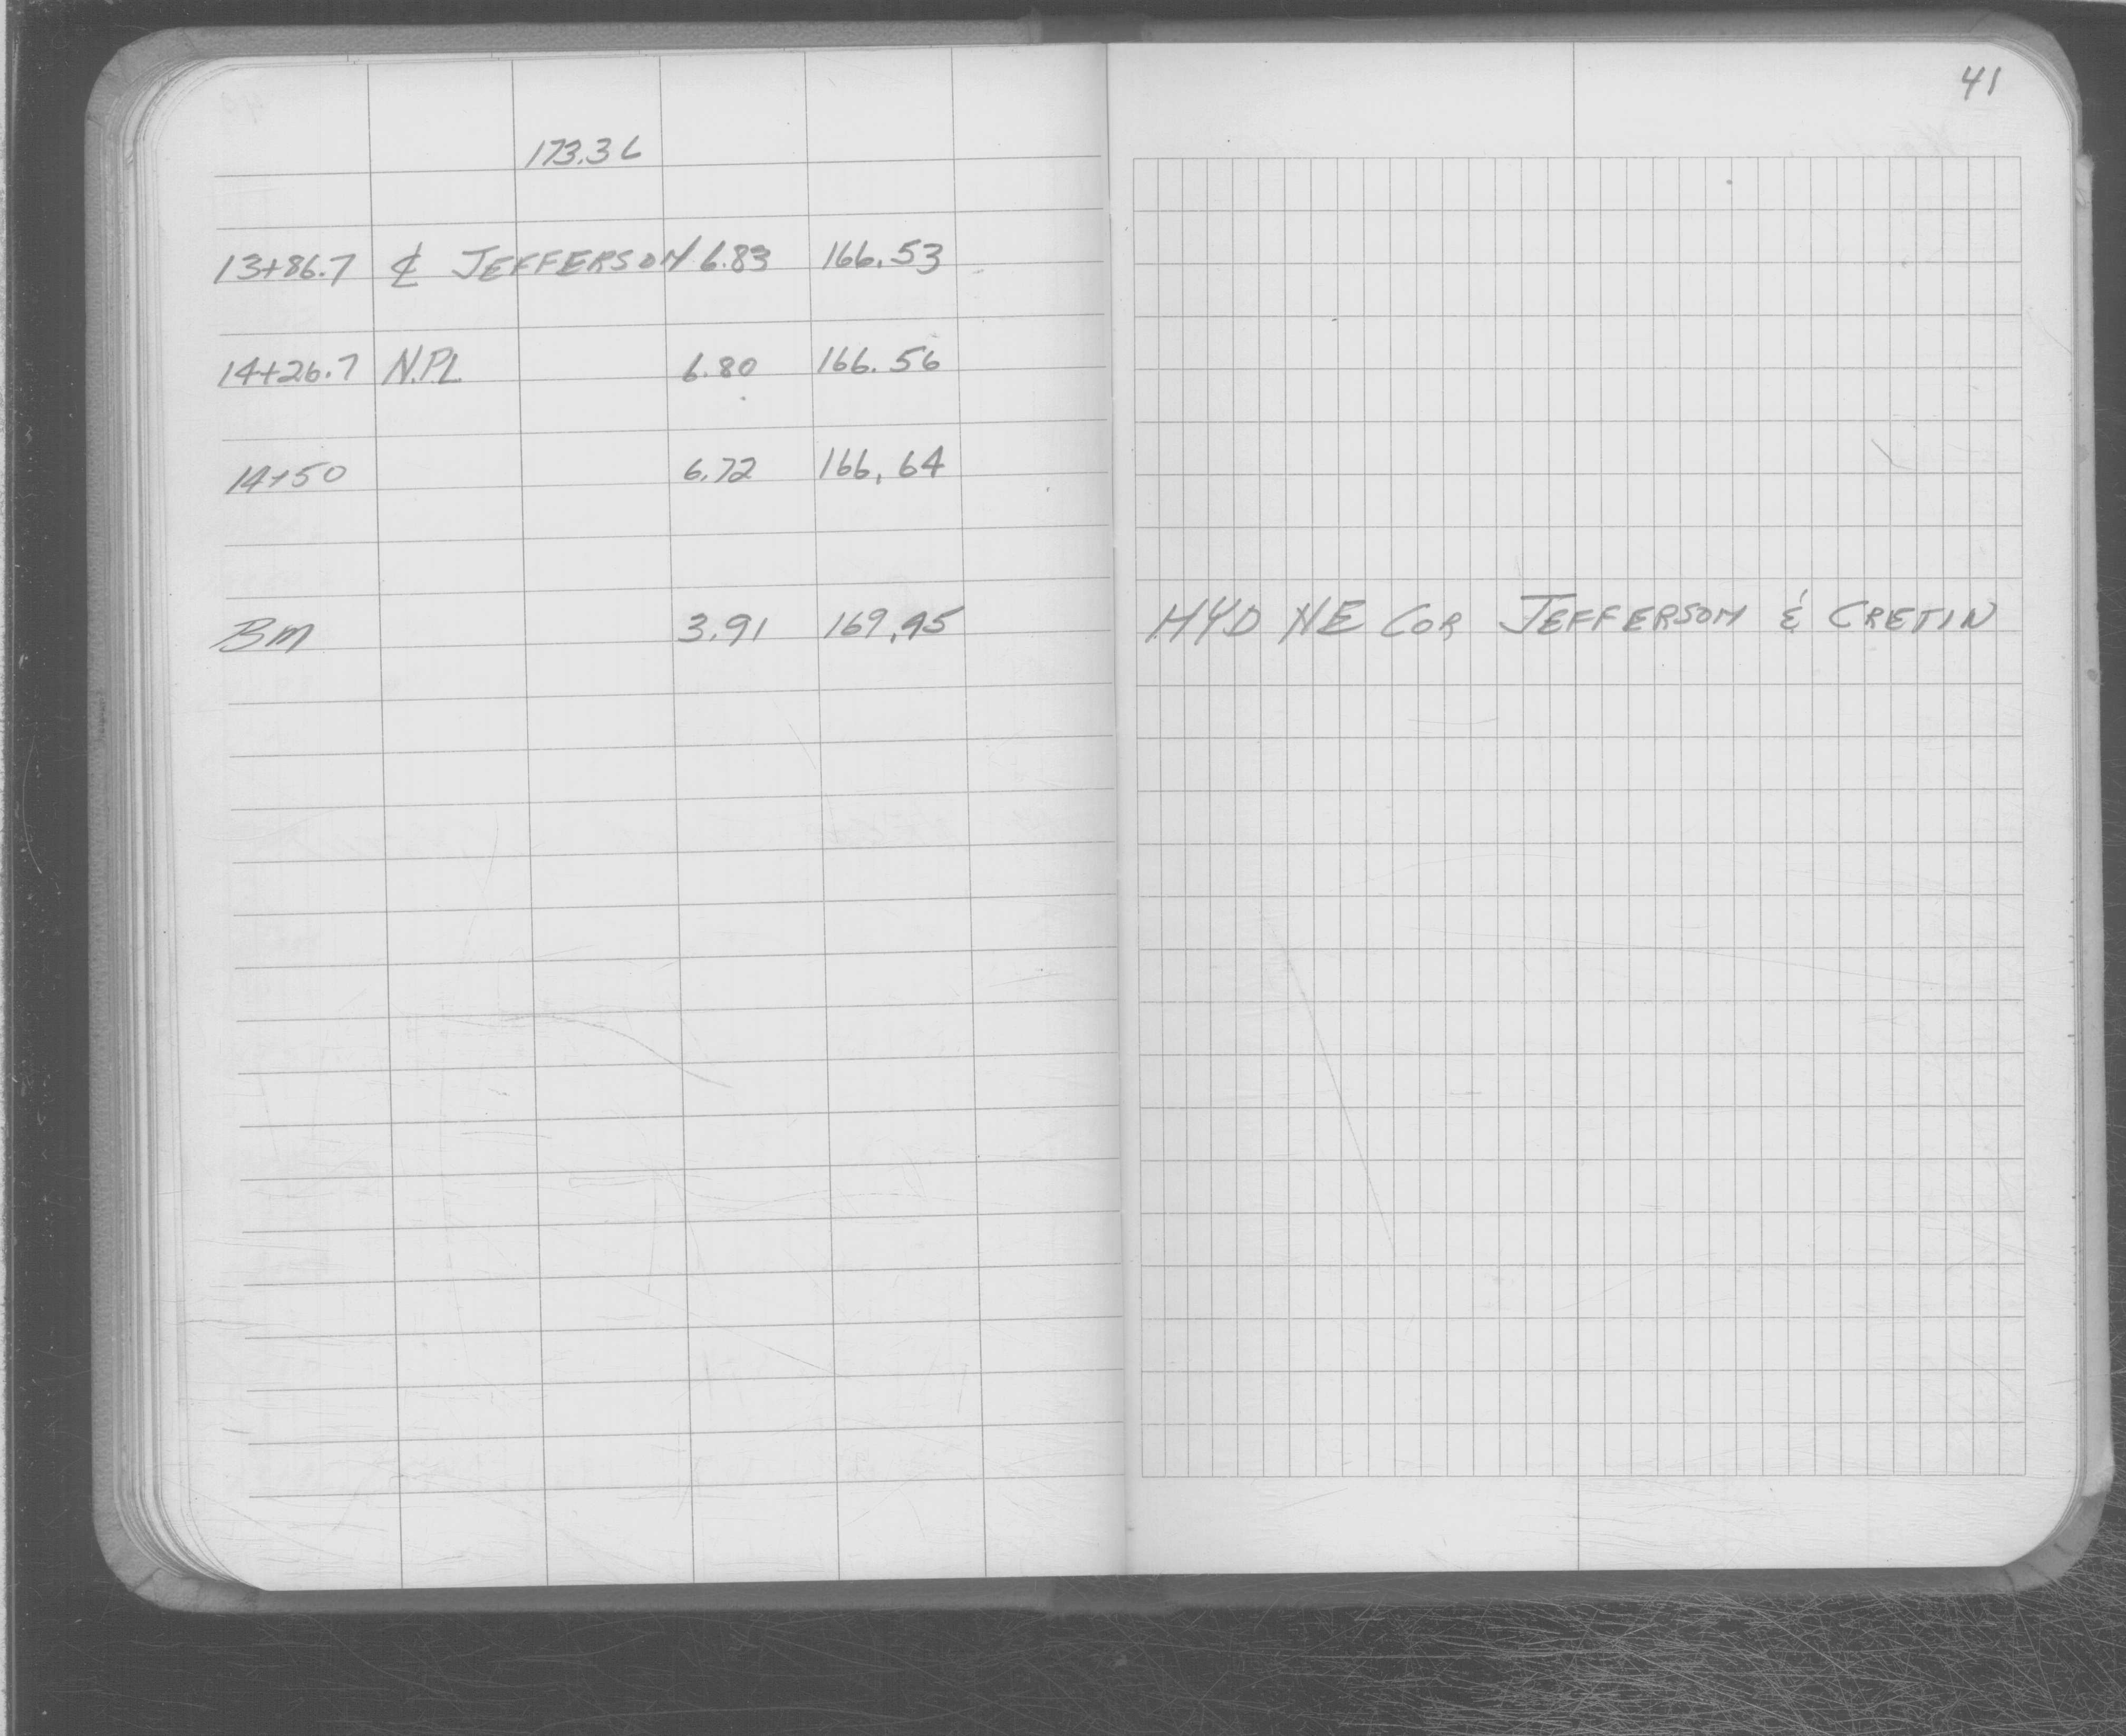 41
173.36
13+86.7 ℄ JEFFERSON 6.83 166.53
14+26.7 N.PL 6.80 166.56
14+50 6.72 166.64
BM 3.91 169.45 HYD NE COR JEFFERSON & CRETIN